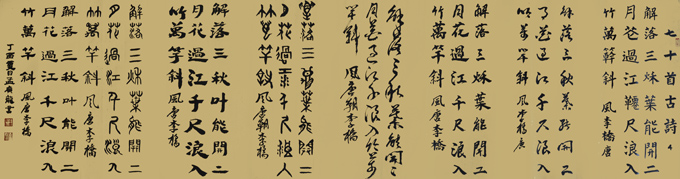 七十首古詩
解落三秌葉能開二
月花過江韆尺浪入
竹萬斜風李橋唐
解落三秋葉能開二
月花過江千尺浪入
竹萬竿斜風李橋唐
解落三秌葉能開二
月花過江千尺浪入
竹萬竿斜風唐李橋
解落三秋葉能開二
月花過江千尺浪入竹萬
竿斜風唐李橋
落三葉能開二
月花過江千尺浪入
竹萬竿斜風唐李橋
解落三秋叶能開二
月花過江千尺浪入
竹萬竿斜風唐李橋
解落三秌葉能開二
月花過江千尺浪入
竹萬竿斜風唐李橋
解落三秋叶能開二
月花過江千尺浪入
竹萬竿斜風唐李橋
丁酉夏日孟書